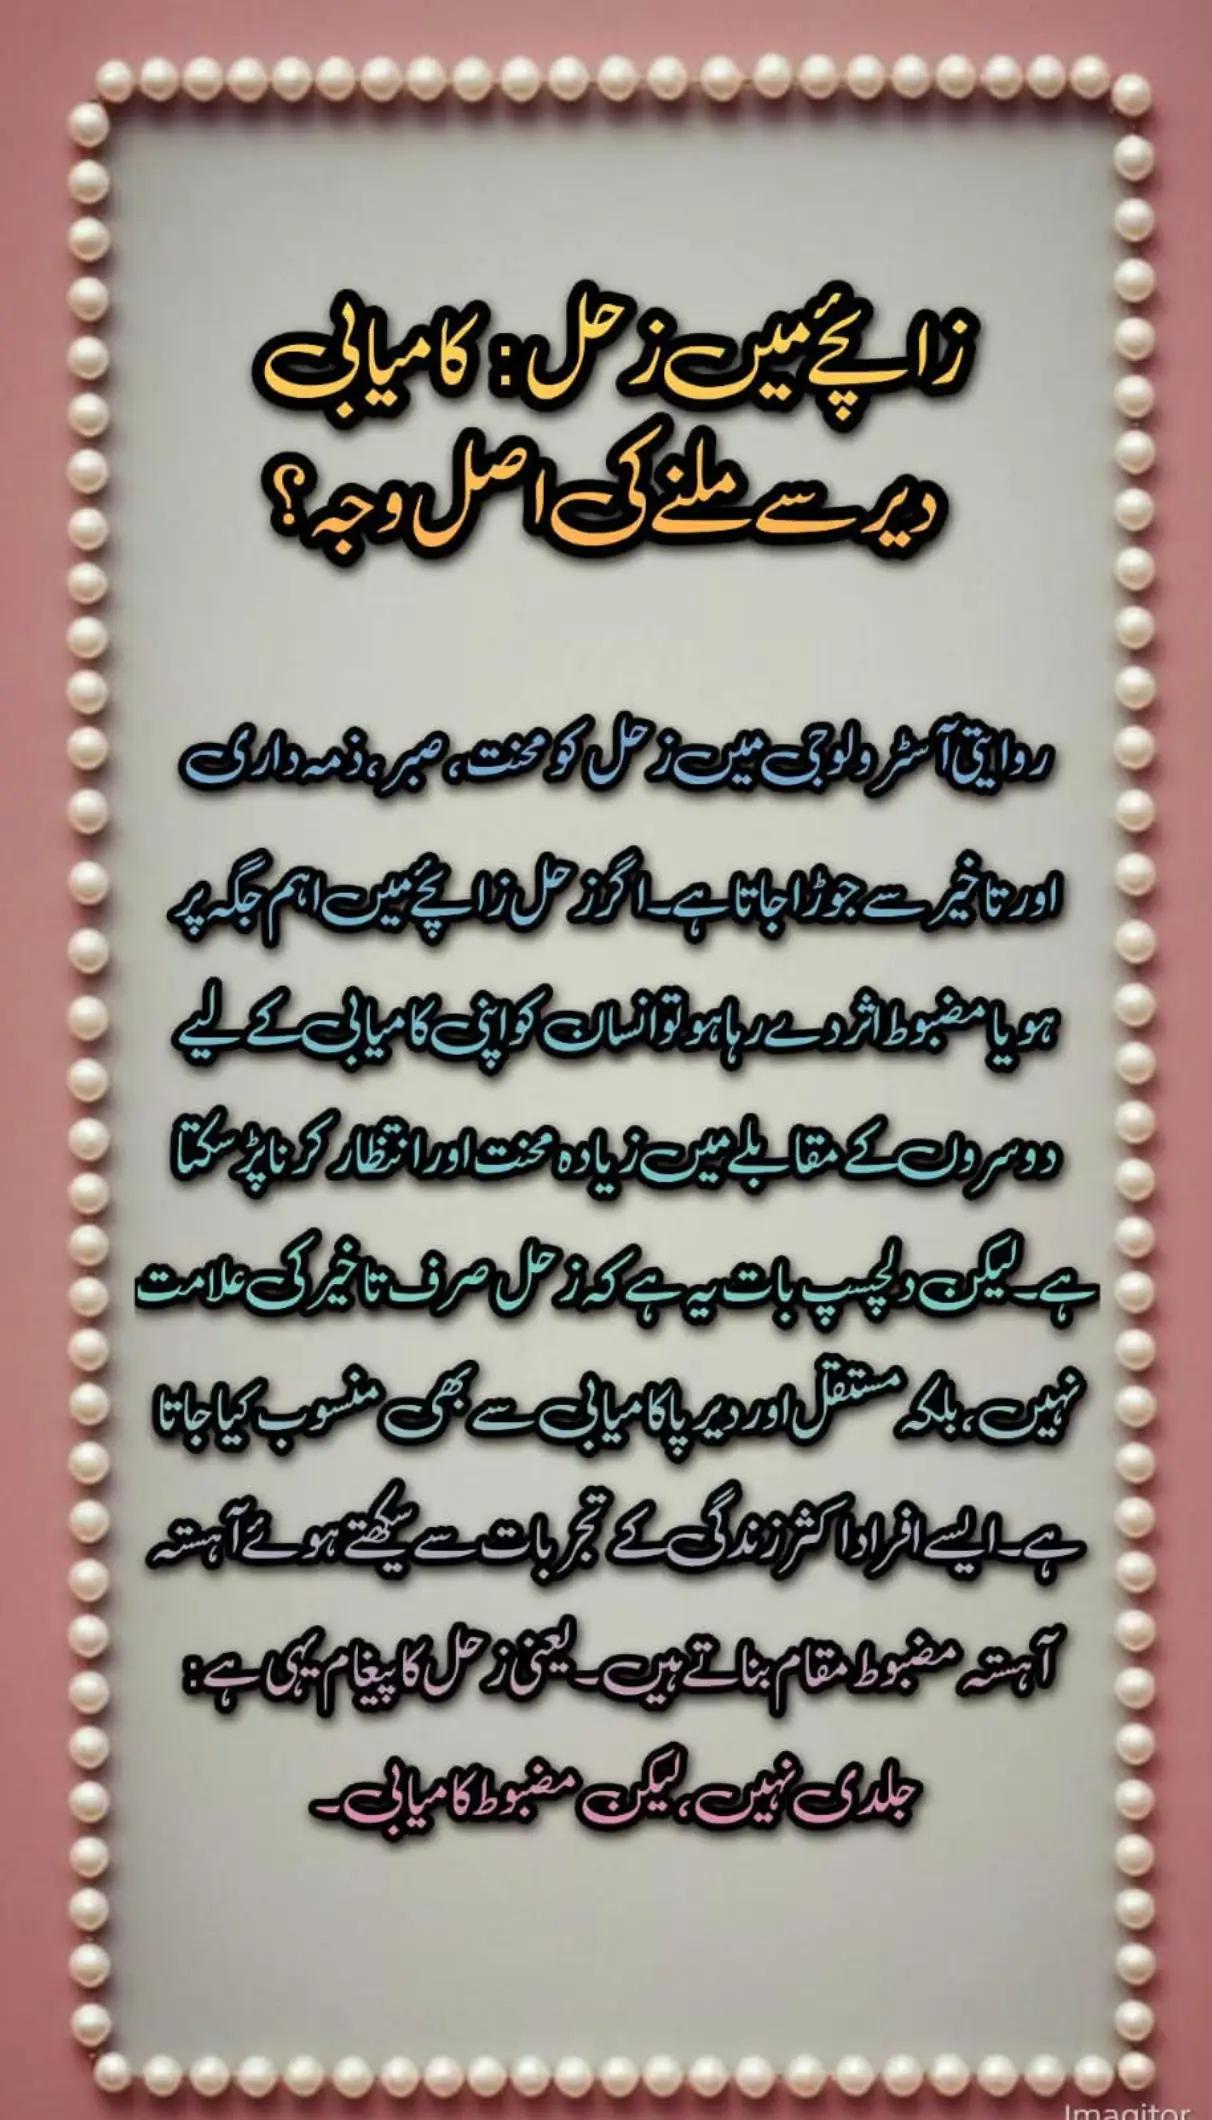 زائچے میں زحل: کامیابی
دیر سے ملنے کی اصل وجہ؟
روایتی آسٹرولوجی میں زحل کو محنت، صبر، ذمہ داری
اور تاخیر سے جوڑا جاتا ہے۔ اگر زحل زائچے میں اہم جگہ پر
ہو یا مضبوط اثر دے رہا ہو تو انسان کو اپنی کامیابی کے لیے
دوسروں کے مقابلے میں زیادہ محنت اور انتظار کرنا پڑ سکتا
ہے۔ لیکن دلچسپ بات یہ ہے کہ زحل صرف تاخیر کی علامت
نہیں، بلکہ مستقل اور دیرپا کامیابی سے بھی منسوب کیا جاتا
ہے۔ ایسے افراد اکثر زندگی کے تجربات سے سیکھتے ہوئے آہستہ
آہستہ مضبوط مقام بناتے ہیں۔ یعنی زحل کا پیغام یہی ہے:
جلدی نہیں، لیکن مضبوط کامیابی۔
Imagitor